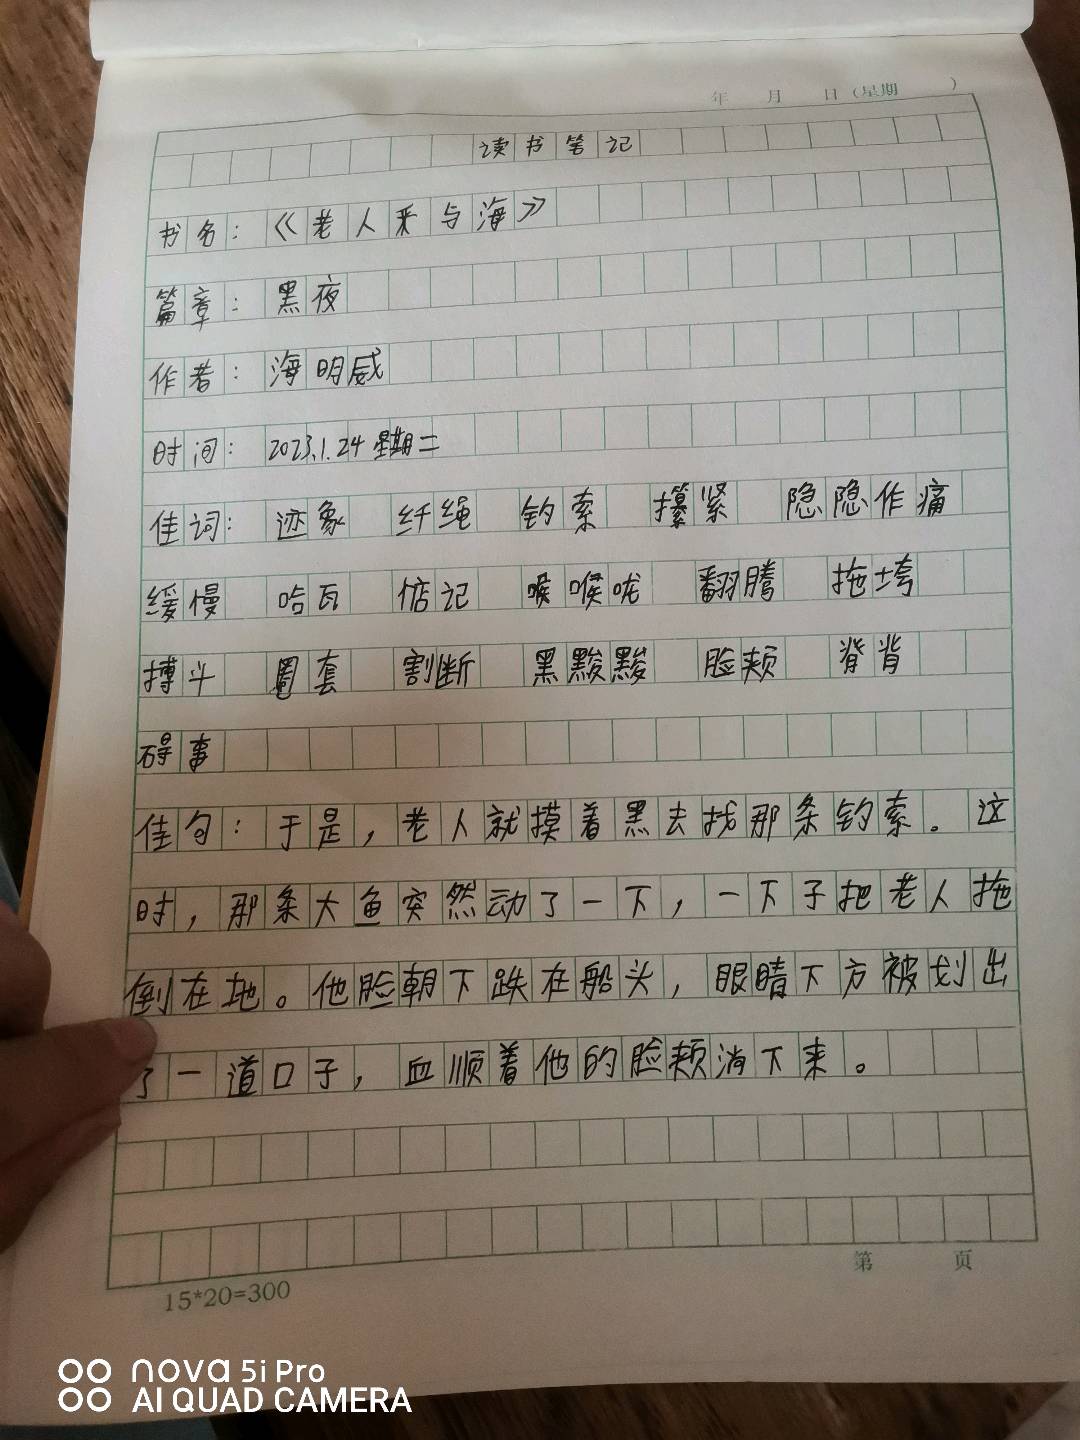 年 月 日（星期 ）
读书笔记
书名：《老人与海》
篇章：黑夜
作者：海明威
时间：2023.1.24 星期二
佳词：迹象 纤绳 钓索 攥紧 隐隐作痛
缓慢 哈瓦 惦记 喉喉咙 翻腾 拖垮
搏斗 圈套 割断 黑黢黢 脸颊 脊背
碍事
佳句：于是，老人就摸着黑去找那条钓索。这
时，那条大鱼突然动了一下，一下子把老人拖
倒在地。他脸朝下跌在船头，眼睛下方被划出
了一道口子，血顺着他的脸颊淌下来。
第 页
15*20=300
nova 5i Pro
AI QUAD CAMERA